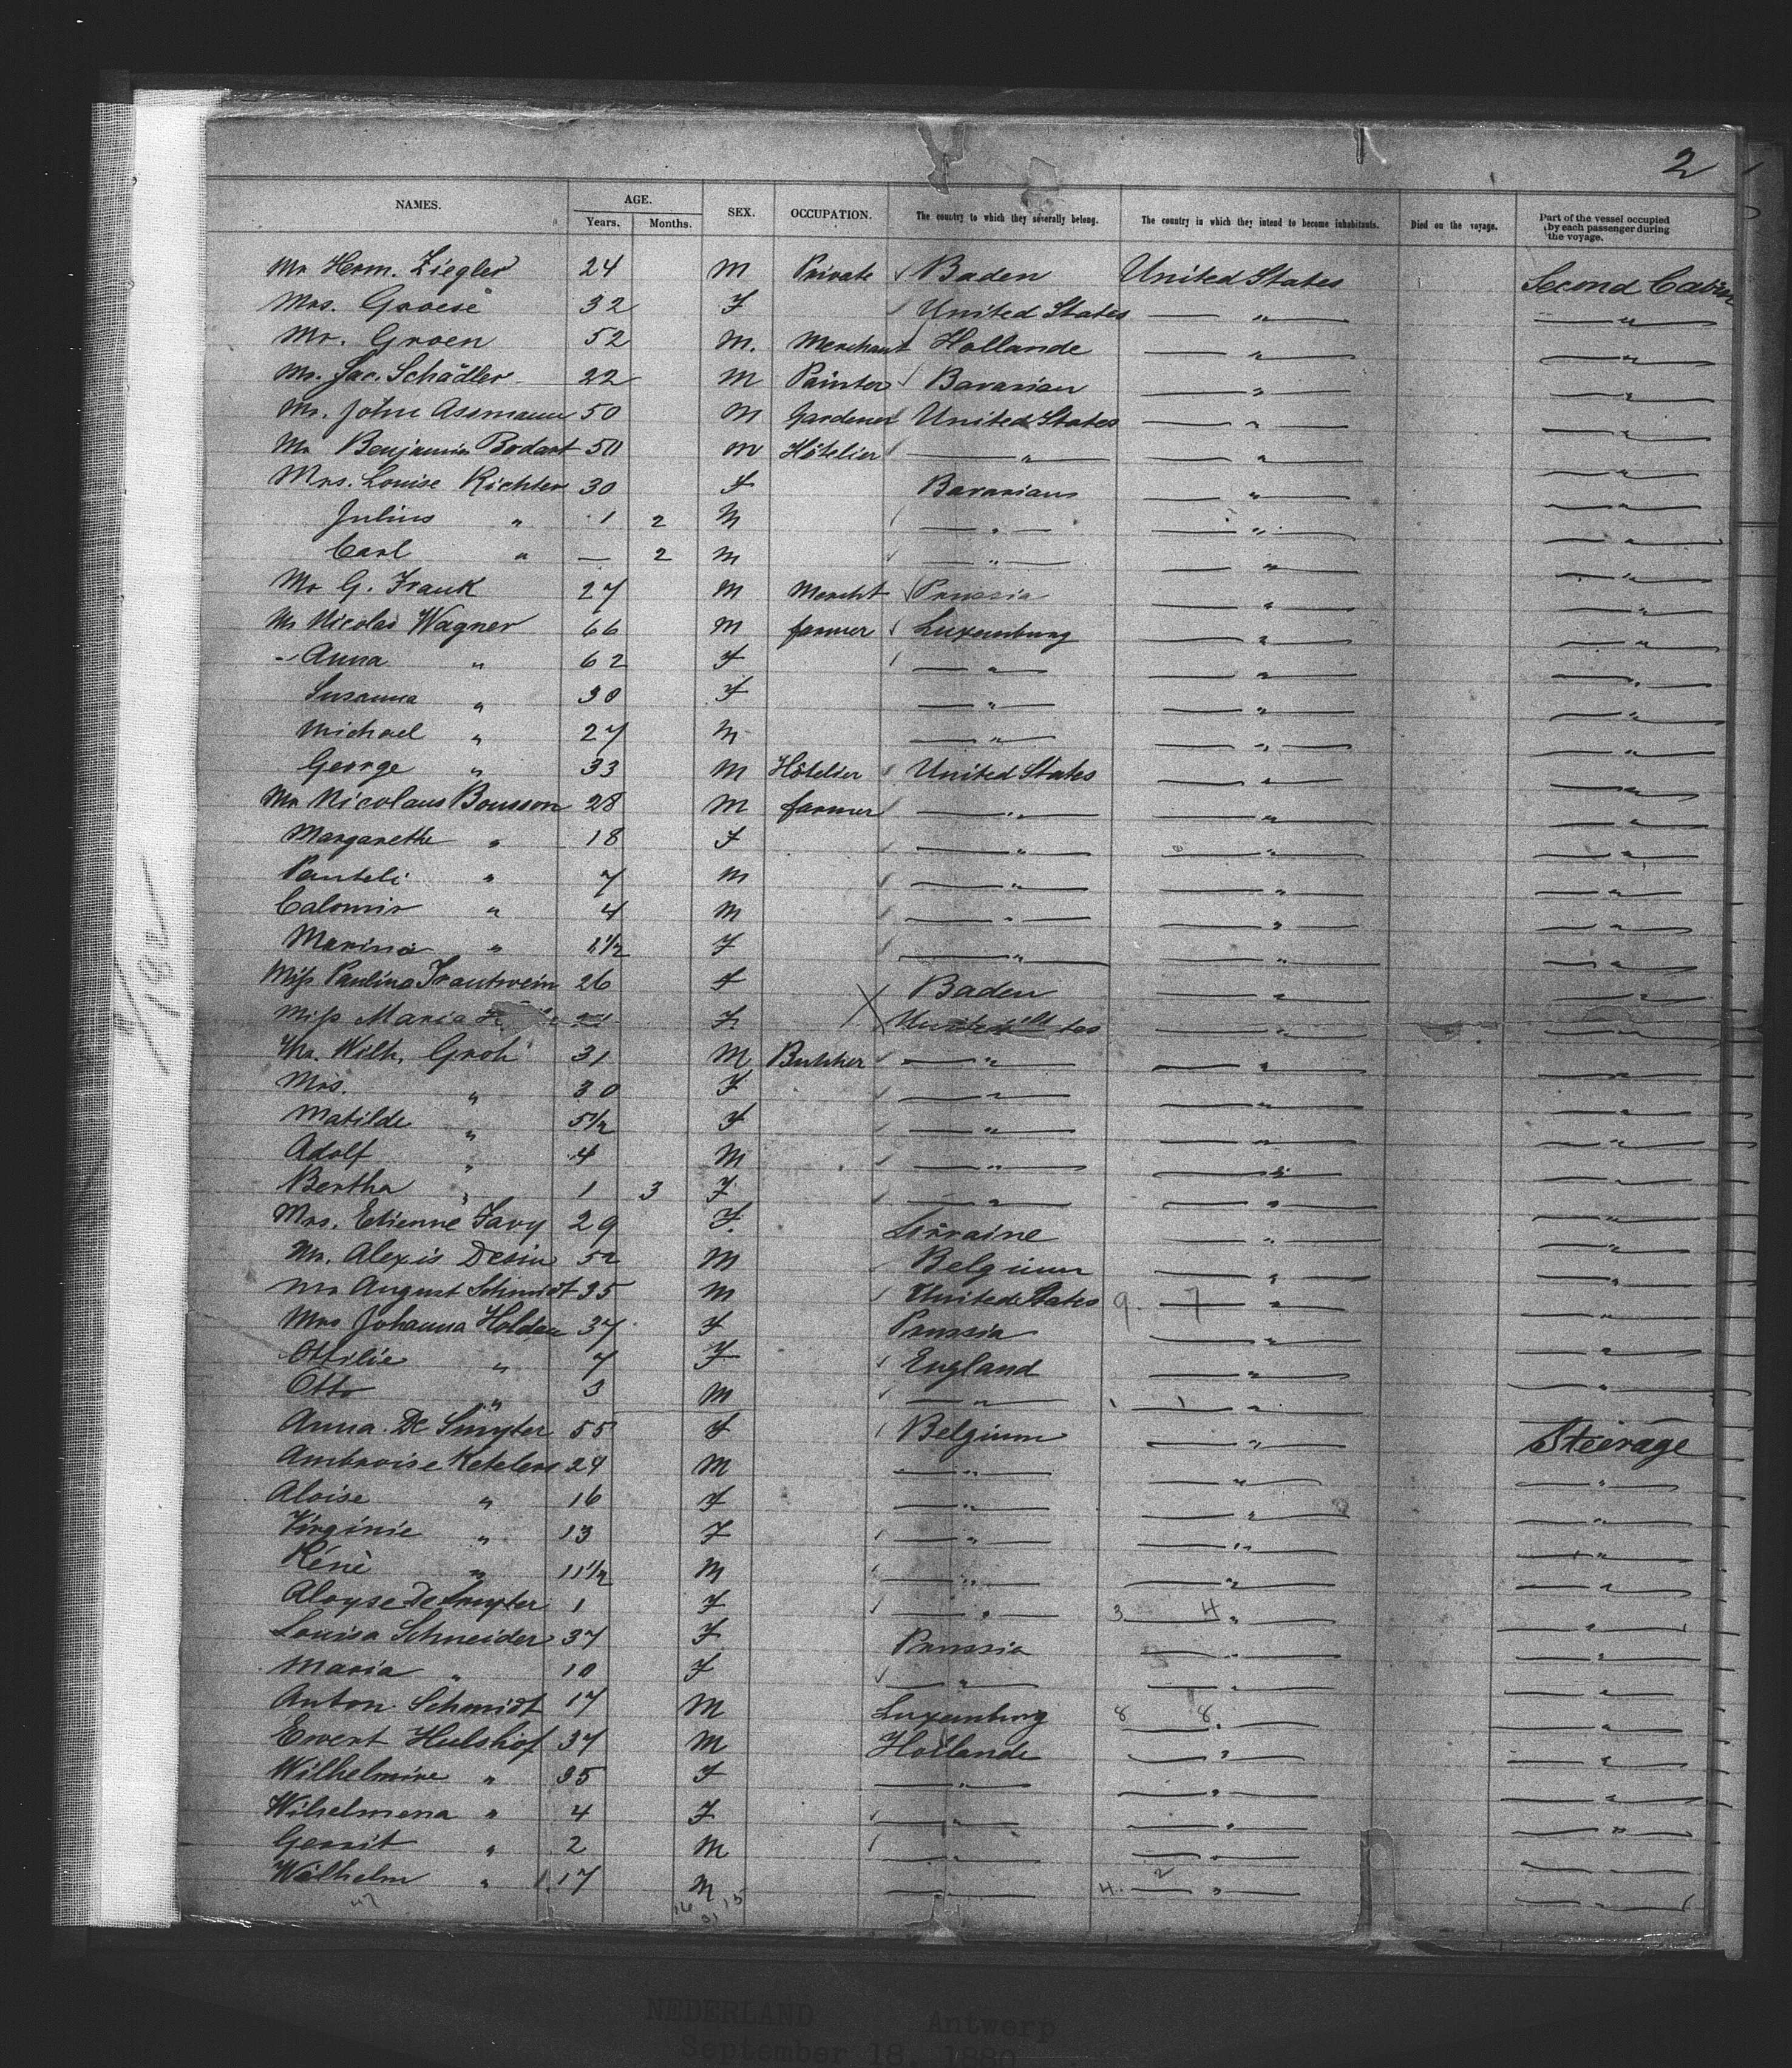 2
NAMES. AGE. Years. Months. SEX. OCCUPATION. The country to which they severally belong. The country in which they intend to become inhabitants. Died on the voyage. Part of the vessel occupied by each passenger during the voyage.
Mr Herm. Ziegler 24 M Private Baden United States Second Cabin
Mrs. Groese 32 F United States " "
Mr. Groen 52 M. Merchant Hollande " "
Mr. Jac. Schädler 22 M Painter Bavarian " "
Mr. John Assmann 50 M Gardener United States " "
Mr Benjamin Bodart 50 M Hôtelier " " "
Mrs. Louise Richter 30 F Bavarians " "
Julius " 1 2 M " " "
Carl " — 2 M " " "
Mr G. Frank 27 M Mercht Prussia " "
Mr Nicolas Wagner 66 M farmer Luxemburg " "
Anna " 62 F " " "
Susanna " 30 F " " "
Michael " 27 M " " "
George " 33 M Hôtelier United States " "
Mr Nicolaus Bousson 28 M farmer " " "
Margarethe " 18 F " " "
Panteli " 7 M " " "
Calomir " 4 M " " "
Marina " 1½ F " " "
Miss Paulina Trautwein 26 F Baden " "
Miss Maria F United States " "
Mr. Wilh. Groh 31 M Butcher " " "
Mrs. " 30 F " " "
Matilde " 5½ F " " "
Adolf " 4 M " " "
Bertha " 1 3 F " " "
Mrs. Etienne Favy 29 F. Lorraine " "
Mr. Alexis Desin 52 M Belgium " "
Mr August Schmidt 35 M United States 9. 7 " "
Mrs Johanna Holden 37 F Prussia " "
Ottilie " 7 F England " "
Otto " 3 M " 1 1 " "
Anna De Smyter 55 F Belgium " Steerage
Ambroise Ketelers 24 M " " "
Aloise " 16 F " " "
Virginie " 13 F " " "
Réné " 11½ M " " "
Aloyse De Smyter 1 F " 3. 4 " "
Louisa Schneider 37 F Prussia " "
Maria " 10 F " " "
Anton Schmidt 17 M Luxemburg 8 8 " "
Ewert Hulshof 37 M Hollande " "
Wilhelmine " 35 F " " "
Wilhelmena " 4 F " " "
Gerrit " 2 M " " "
Wilhelm " 17 M " 4. 2 " "
47 16 15
31
NEDERLAND Antwerp
September 18, 1880